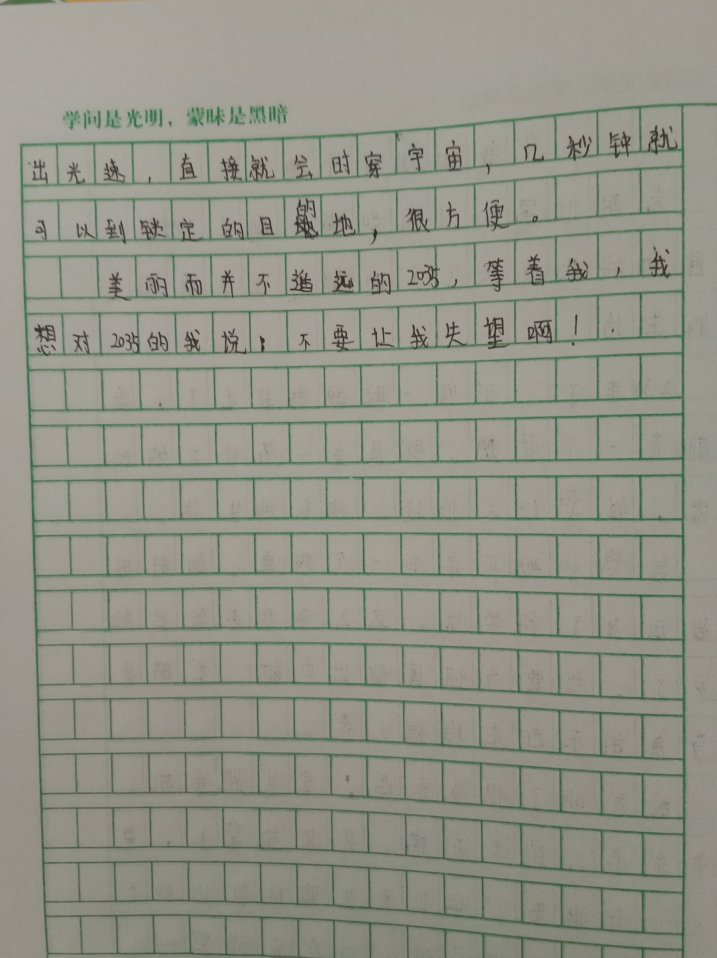 学问是光明，蒙昧是黑暗
出光速，直接就会时穿宇宙，几秒钟就
可以到锁定的目的地，很方便。
美丽而并不遥远的2035，等着我，我
想对2035的我说：不要让我失望啊！